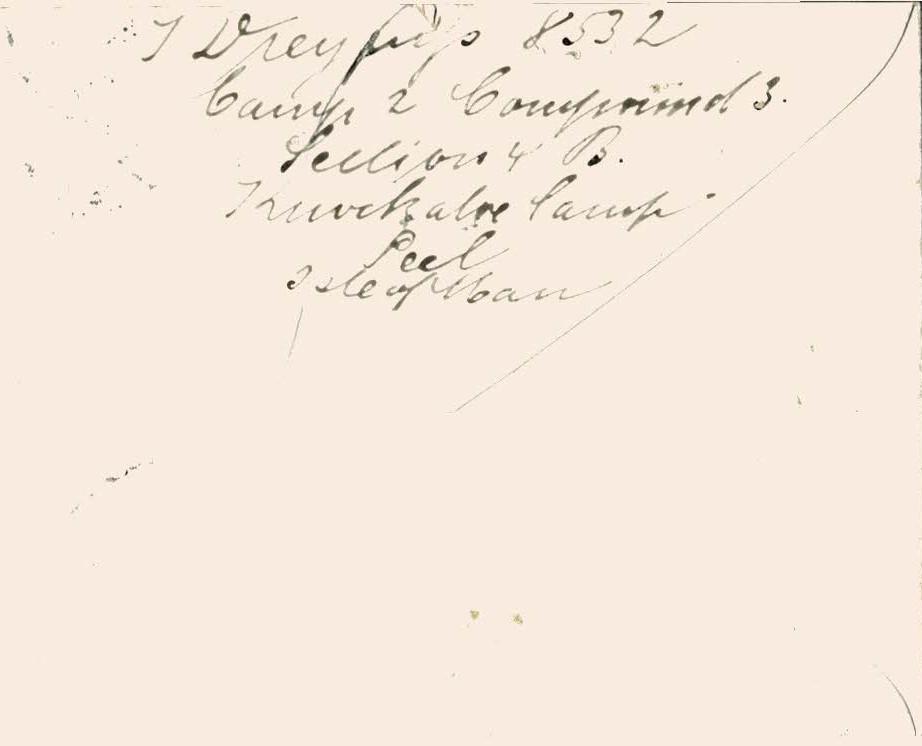 J Dreyfuss 8532
Camp 2 Compound 3.
Section 4 B.
Knockaloe Camp
Peel
Isle of Man